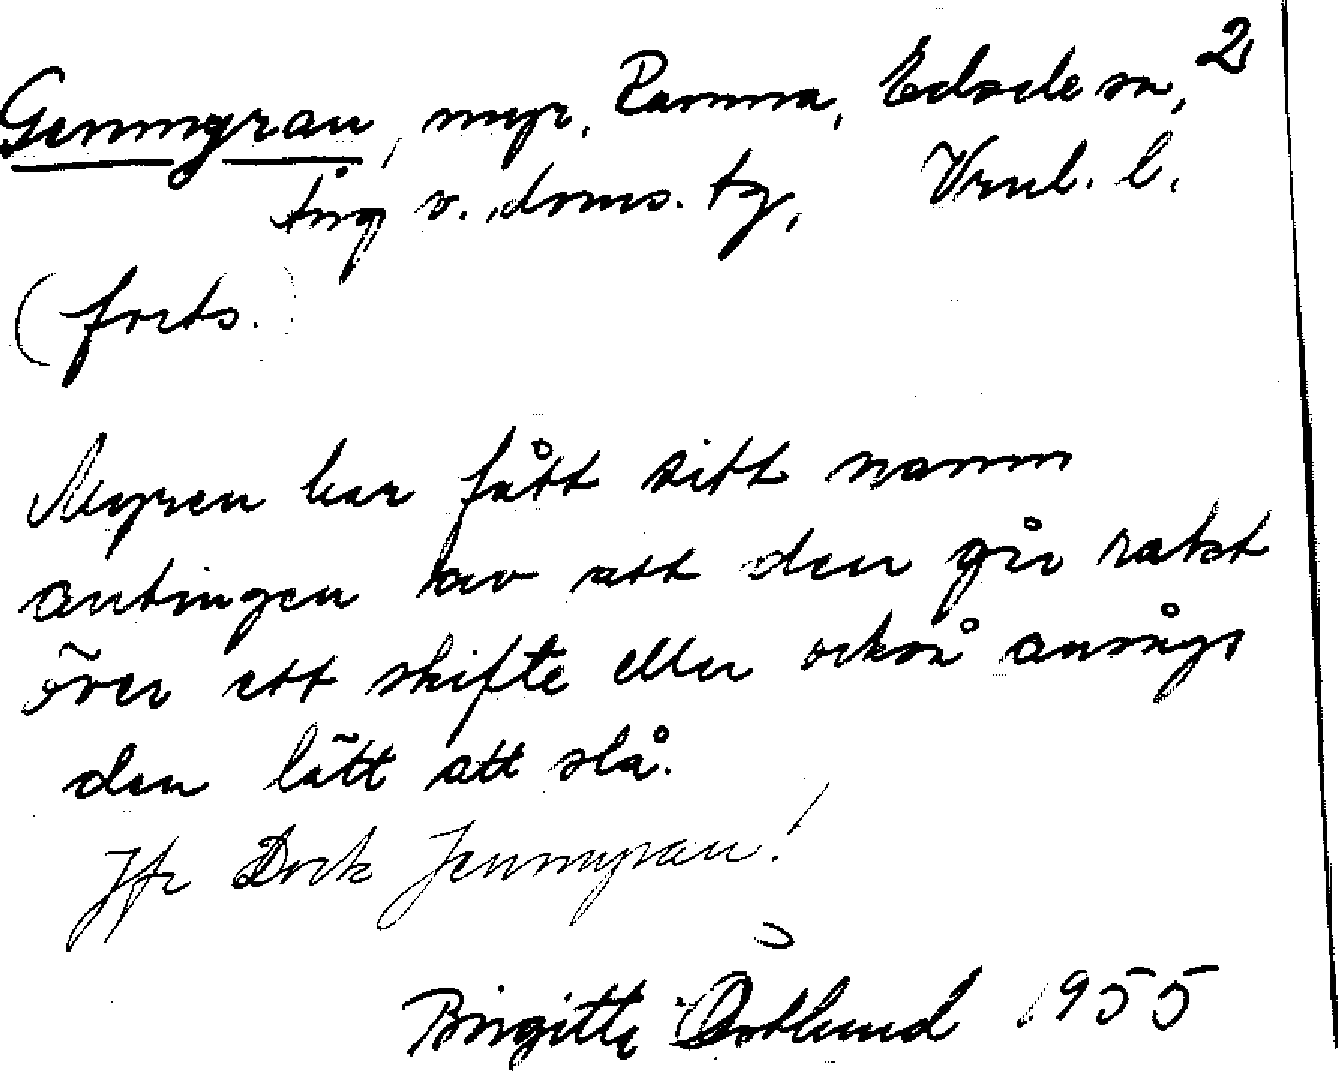 Genmyran, myr, Ramma, Edsele sn, 2
Ång v. doms. tg, Vnl. l.
(forts.)
Myren har fått sitt namn
antingen av att den går rakt
över ett skifte eller också ansågs
den lätt att slå.
Jfr Dock Jenmyran!
Birgitta Östlund 1955